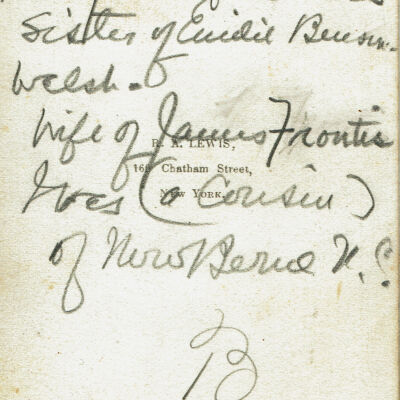 Sister of Emilie Benson-
Welsh.
Wife of James Frontis
R. A. LEWIS,
Chatham Street,
NEW YORK.
Ives (a Cousin)
of New Berne N.C.
B